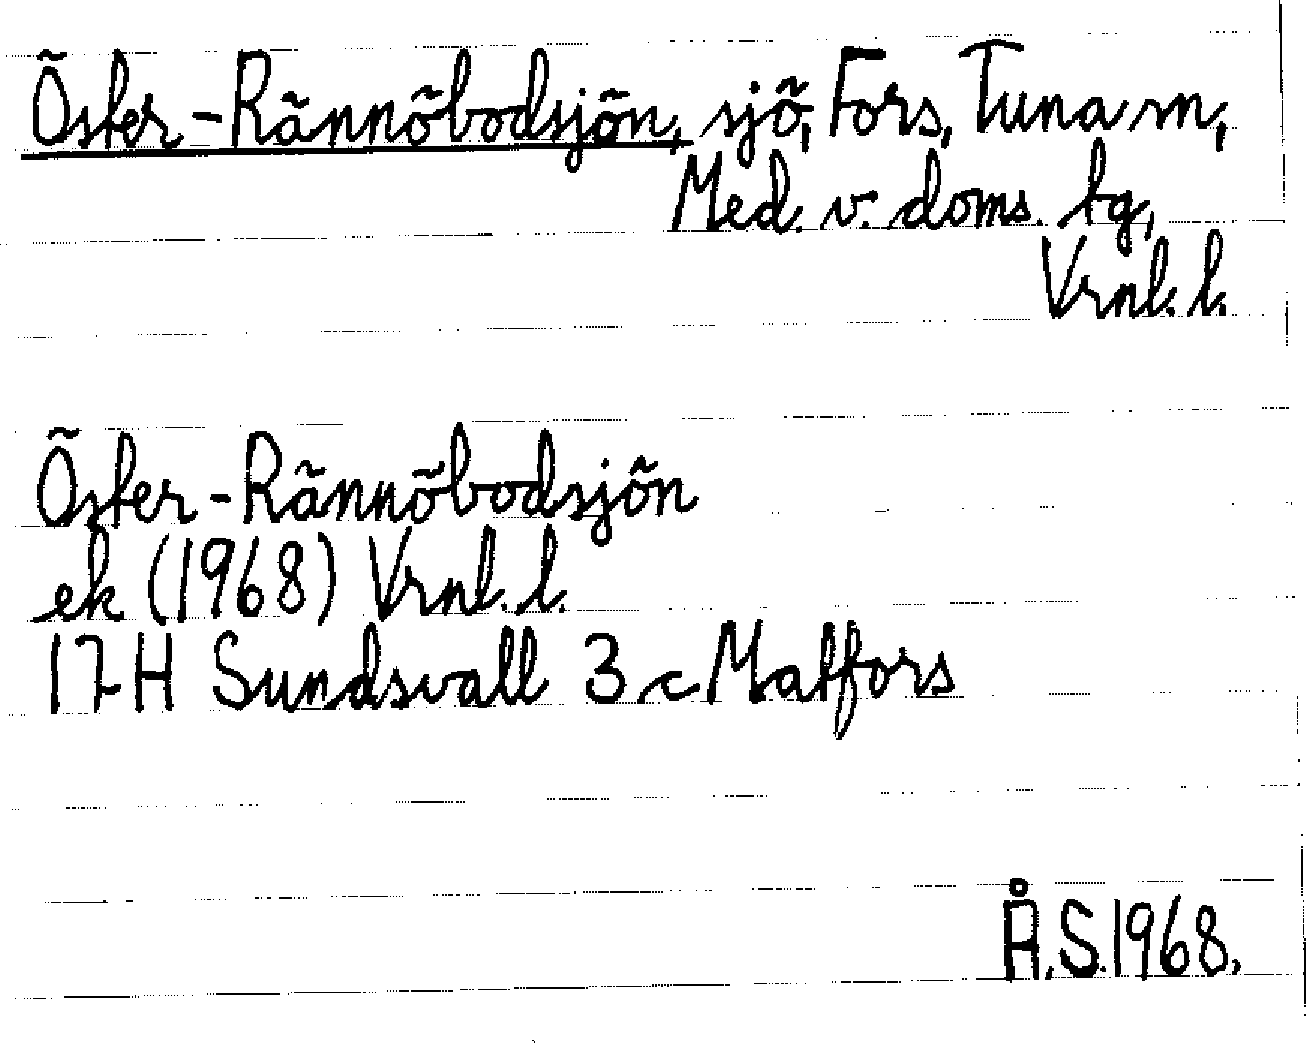 Öster-Rännöbodsjön, sjö, Fors, Tuna sn,
Med. v. doms. tg,
Vrnl. l.
Öster-Rännöbodsjön
ek (1968) Vrnl. l.
17H Sundsvall 3 c Matfors
Å.S.1968.